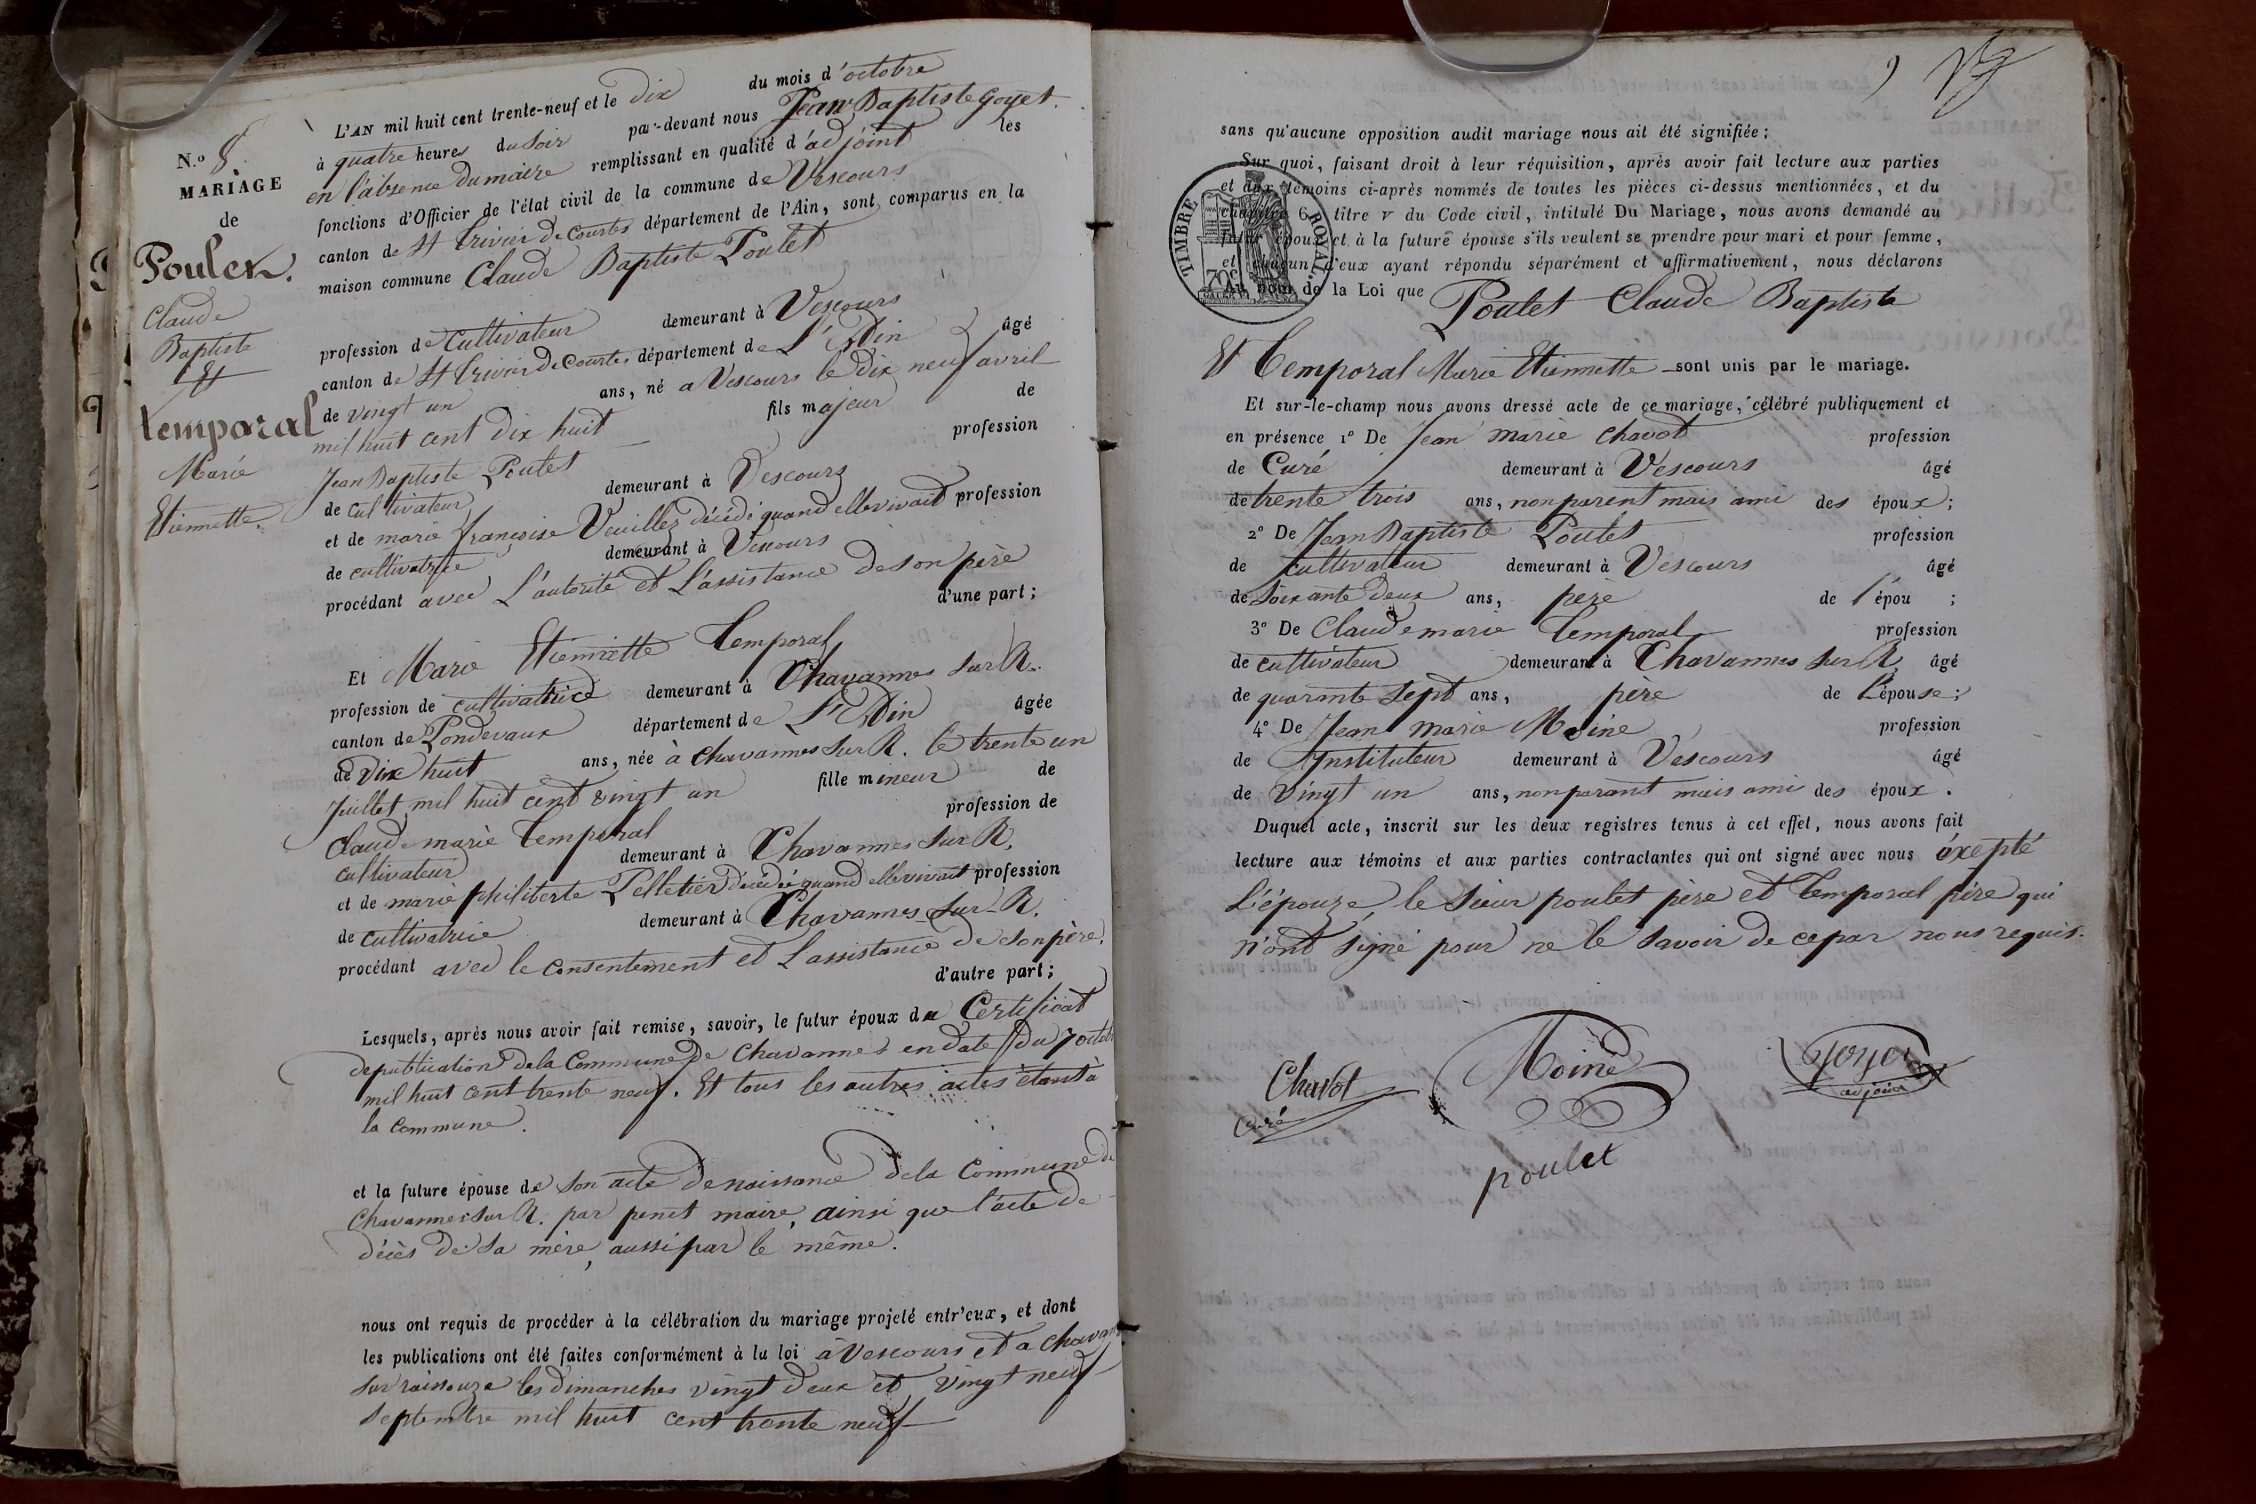 N.º 8.
MARIAGE
de
Poulet.
Claude
Baptiste
Et
temporal
Marie
Etiennette.
L'AN mil huit cent trente-neuf et le dix du mois d'octobre
à quatre heures du soir par-devant nous Jean Baptiste Goyet.
en l'absence du maire remplissant en qualité d'adjoint les
fonctions d'Officier de l'état civil de la commune de Vescours
canton de St trivier de Courtes département de l'Ain, sont comparus en la
maison commune Claude Baptiste Poulet
profession de cultivateur demeurant à Vescours
canton de St trivier de Courtes département de L'Ain âgé
de vingt un ans, né a Vescours le dix neuf avril
mil huit cent dix huit fils majeur de
Jean Baptiste Poulet profession
de cultivateur demeurant à Vescours
et de marie françoise Veuillez décédé quand elle vivait profession
de cultivatrice demeurant à Vescours
procédant avec L'autorité et L'assistance de son père
d'une part;
Et Marie Etiennette temporal
profession de cultivatrice demeurant à Chavannes sur R.
canton de Pondevaux département de L'Ain âgée
de Dix huit ans, née à chavannes sur R. le trente un
Juillet mil huit cent vingt un fille mineur de
Claude marie temporal profession de
cultivateur demeurant à Chavannes sur R.
et de marie philiberte Pelletier décédée quand elle vivait profession
de cultivatrice demeurant à Chavannes sur R.
procédant avec le consentement et L'assistance de son père.
d'autre part;
Lesquels, après nous avoir fait remise, savoir, le futur époux du Certificat
de publication de la Commune de Chavannes en date du 7 octob
mil huit cent trente neuf. Et tous les autres actes étant à
la Commune.
et la future épouse de son acte de naissance de la Commune de
Chavannes sur R. par penet maire, ainsi que l'acte de
décès de sa mère, aussi par le même.
nous ont requis de procéder à la célébration du mariage projeté entr'eux, et dont
les publications ont été faites conformément à la loi à Vescours et a chavan
sur raissouze les dimanches vingt deux et vingt neuf
septembre mil huit cent trente neuf
sans qu'aucune opposition audit mariage nous ait été signifiée;
Sur quoi, faisant droit à leur réquisition, après avoir fait lecture aux parties
et aux témoins ci-après nommés de toutes les pièces ci-dessus mentionnées, et du
chapitre 6, titre V du Code civil, intitulé Du Mariage, nous avons demandé au
futur époux et à la future épouse s'ils veulent se prendre pour mari et pour femme,
et chacun d'eux ayant répondu séparément et affirmativement, nous déclarons
au nom de la Loi que Poulet Claude Baptiste
TIMBRE ROYAL
70c
Et temporal Marie Etiennette sont unis par le mariage.
Et sur-le-champ nous avons dressé acte de ce mariage, célébré publiquement et
en présence 1º De Jean marie chavot profession
de Curé demeurant à Vescours âgé
de trente trois ans, non parent mais ami des époux;
2º De Jean Baptiste Poulet profession
de cultivateur demeurant à Vescours âgé
de soixante deux ans, père de l'épou ;
3º De Claude marie temporal profession
de cultivateur demeurant à Chavannes sur R. âgé
de quarante sept ans, père de L'épouse;
4º De Jean marie Moine profession
de Instituteur demeurant à Vescours âgé
de vingt un ans, non parant mais ami des époux.
Duquel acte, inscrit sur les deux registres tenus à cet effet, nous avons fait
lecture aux témoins et aux parties contractantes qui ont signé avec nous éxepté
L'épouze, le sieur poulet père et temporal père qui
n'ont signé pour ne le savoir de ce par nous requis.
Chavot
Curé
Moine
Goyet
adjoint
poulet